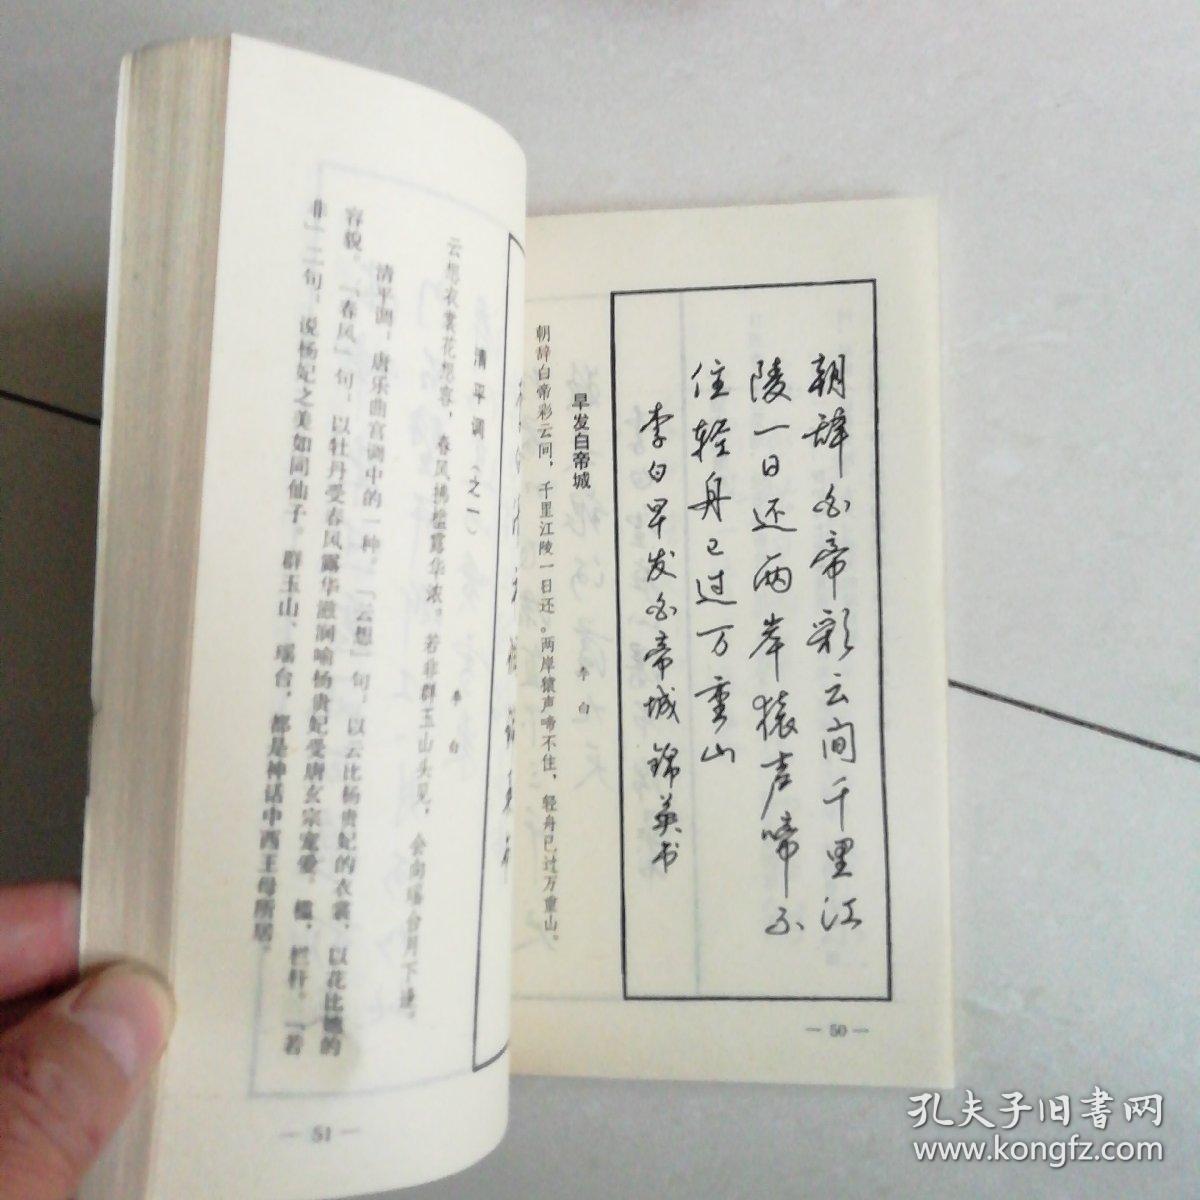 朝辞白帝彩云间千里江
陵一日还两岸猿声啼不
住轻舟已过万重山
李白早发白帝城锦英书
早发白帝城
李白
朝辞白帝彩云间，千里江陵一日还。两岸猿声啼不住，轻舟已过万重山。
— 50 —
清平调（之一）
李白
云想衣裳花想容，春风拂槛露华浓。若非群玉山头见，会向瑶台月下逢。
清平调：唐乐曲宫调中的一种。「云想」句：以云比杨贵妃的衣裳，以花比她的
容貌。「春风」句：以牡丹受春风露华滋润喻杨贵妃受唐玄宗宠爱。槛，栏杆。「若
非」二句：说杨妃之美如同仙子。群玉山、瑶台，都是神话中西王母所居。
— 51 —
孔夫子旧书网
www.kongfz.com